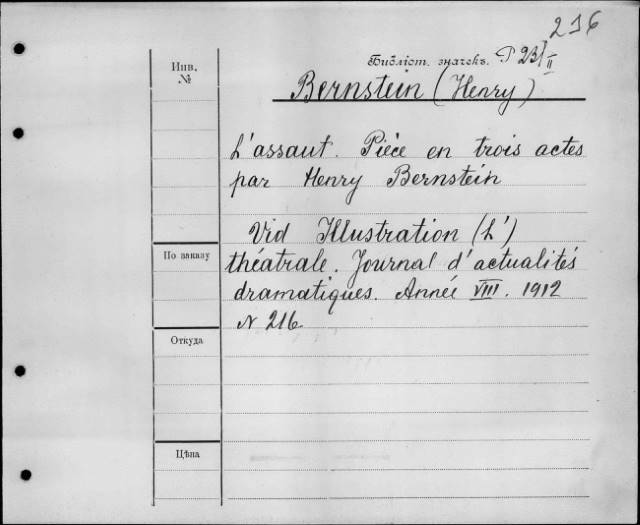 216
Инв.
№
Библіот. значекъ. P 231/II
Bernstein (Henry)
L'assaut. Pièce en trois actes
par Henry Bernstein
Vid Illustration (L')
По заказу
théatrale. Journal d'actualités
dramatiques. Année VIII. 1912
N 216
Откуда
Цѣна